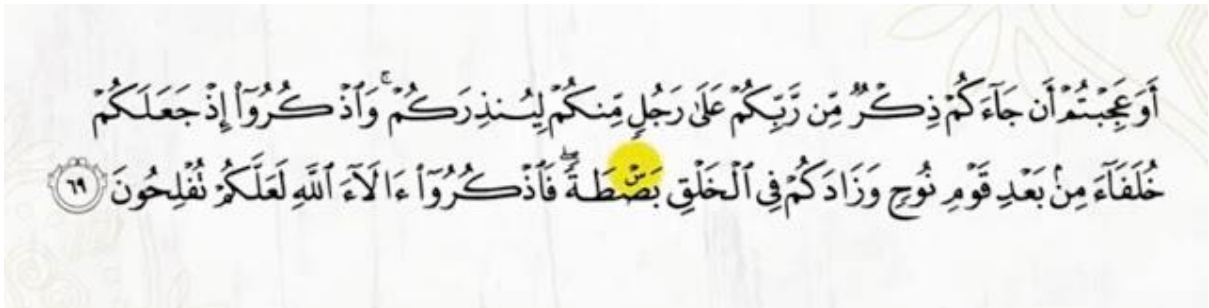 أَوَعَجِبْتُمْ أَن جَآءَكُمْ ذِكْرٌ مِّن رَّبِّكُمْ عَلَىٰ رَجُلٍ مِّنكُمْ لِيُنذِرَكُمْ ۚ وَٱذْكُرُوٓا۟ إِذْ جَعَلَكُمْ
خُلَفَآءَ مِنۢ بَعْدِ قَوْمِ نُوحٍ وَزَادَكُمْ فِى ٱلْخَلْقِ بَصْۜطَةً ۖ فَٱذْكُرُوٓا۟ ءَالَآءَ ٱللَّهِ لَعَلَّكُمْ تُفْلِحُونَ ٦٩